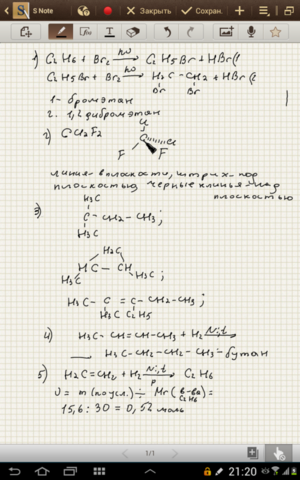 S Note
Закрыть
Сохран.
1) C2H6 + Br2 hν→ C2H5Br + HBr(
C2H5Br + Br2 hν→ H2C – CH2 + HBr(
Br Br
1- бромэтан
2. 1,2 дибромэтан
2) CCl2F2
Cl
C Cl
F F
линия- в плоскости, штрих- под
плоскостью черные клинья- над
плоскостью
3) H3C
C – CH2 – CH3;
H3C
H2C
HC – CH
H3C H3C;
H3C – C = C – CH2 – CH3;
H3C C2H5
4) H3C – CH = CH – CH3 + H2 Ni,t→
H3C – CH2 – CH2 – CH3 - бутан
5) H2C = CH2 + H2 Ni,t→ C2H6
p
υ = m(по усл.) ÷ Mr( в-ва ) =
C2H6
15,6 : 30 = 0,52 моль
1/1
21:20